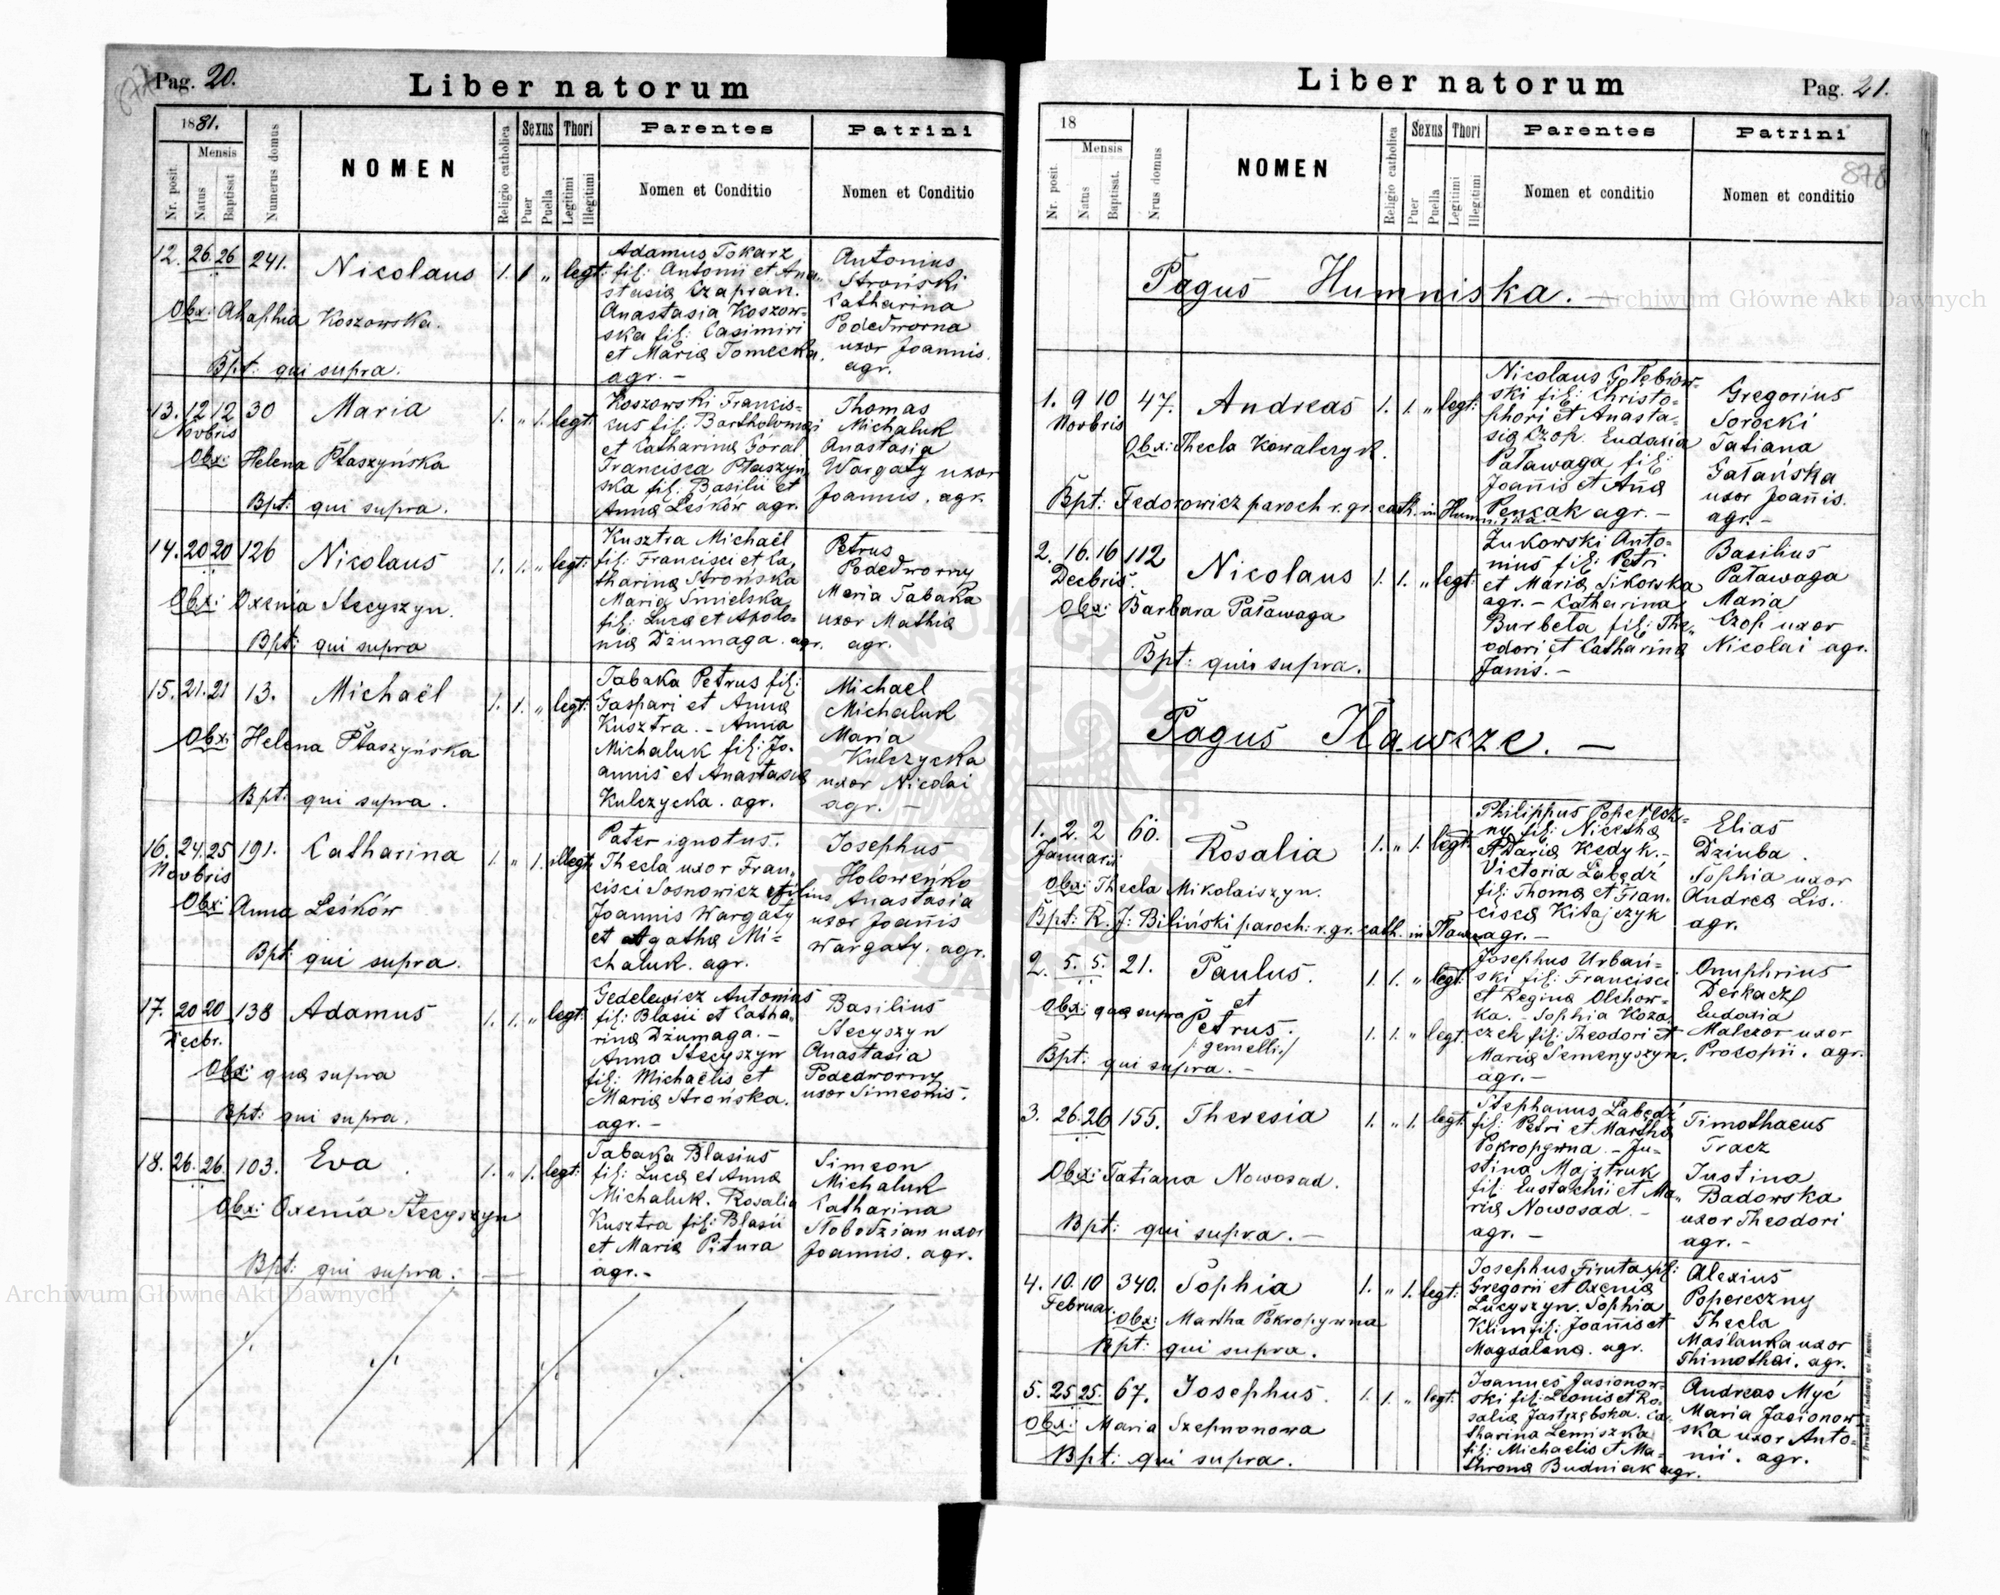 Pag. 20.
Liber natorum
1881.
Mensis
Nr. posit
Natus
Baptisat
Numerus domus
NOMEN
Religio catholica
Sexus
Puer
Puella
Thori
Legitimi
Illegitimi
Parentes
Nomen et Conditio
Patrini
Nomen et Conditio
12. 26. 26 241. Nicolaus 1. 1 „ legt:
Obx: Ahaphia Koszowska.
Bpt: qui supra.
Adamus Tokarz
fil: Antonii et Ana„
stasiæ Czapran.
Anastasia Koszow-
ska fil: Casimiri
et Mariæ Tomecka.
agr. –
Antonius
Stroński
Catharina
Podedworna
uxor Joannis.
agr.
13. 12 12 30 Maria 1. „ 1. legt:
Novbris
Obx: Helena Ptaszyńska
Bpt: qui supra.
Koszowski Francis-
cus fil: Bartholomæi
et Catharinæ Góral
Francisca Ptaszyń
ska fil: Basilii et
Annæ Leśków agr.
Thomas
Michaluk
Anastasia
Wargaty uxor
Joannis. agr.
14. 20 20 126 Nicolaus 1. 1. „ legt:
Obx: Oxenia Stecyszyn.
Bpt: qui supra
Kusztra Michaël
fil: Francisci et Ca„
tharinæ Strońska
Maria Śmielska
fil: Lucæ et Apolo-
niæ Dżumaga. agr.
Petrus
Podedworny
Maria Tabaka
uxor Mathiæ
agr.
15. 21. 21 13. Michaël 1. 1. „ legt:
Obx: Helena Ptaszyńska
Bpt: qui supra.
Tabaka Petrus fil:
Gaspari et Annæ
Kusztra. – Anna
Michaluk fil: Jo-
annis et Anastasiæ
Kulczycka. agr.
Michael
Michaluk
Maria
Kulczycka
uxor Nicolai
agr. –
16. 24. 25 191. Catharina 1. „ 1. illegt:
Novbris
Obx: Anna Leśków
Bpt: qui supra.
Pater ignotus.
Thecla uxor Fran„
cisci Sosnowicz et filius
Joannis Wargaty
et Agathæ Mi-
chaluk. agr.
Josephus
Holoweńko
Anastasia
uxor Joanis
Wargaty. agr.
17. 20 20 138 Adamus 1. 1. „ legt:
Decbr.
Obx: quæ supra
Bpt: qui supra.
Gedelewicz Antonius
fil: Blasii et Catha„
rinæ Dżumaga. –
Anna Stecyszyn
fil: Michaëlis et
Mariæ Strońska.
agr. –
Basilius
Stecyszyn
Anastasia
Podedworny
uxor Simeonis.
18. 26. 26. 103. Eva. 1. „ 1. legt:
Obx: Oxenia Stecyszyn
Bpt: qui supra. –
Tabaka Blasius
fil: Lucæ et Annæ
Michaluk. Rosalia
Kusztra fil: Blasii
et Mariæ Pitura
agr. –
Simeon
Michaluk
Catharina
Słobodzian uxor
Joannis. agr.
Liber natorum
Pag. 21.
878
18
Mensis
Nr. posit
Natus
Baptisat.
Nrus domus
NOMEN
Religio catholica
Sexus
Puer
Puella
Thori
Legitimi
Illegitimi
Parentes
Nomen et conditio
Patrini
Nomen et conditio
Pagus Humniska. –
1. 9 10 47. Andreas 1. 1. „ legt:
Novbris
Obx: Thecla Kowalczyk.
Bpt: Fedorowicz paroch r. gr. cath. in Humniska –
Nicolaus Gołębiow-
ski fil: Christo-
phori et Anasta-
siæ Czop. Eudoxia
Patawaga fil:
Joanis et Anæ
Pencak agr. –
Gregorius
Sorocki
Tatiana
Gatańska
uxor Joanis.
agr. –
2. 16. 16 112 Nicolaus 1. 1. „ legt:
Decbris
Obx: Barbara Patawaga
Bpt: qui supra.
Żukowski Anto-
nius fil: Petri
et Mariæ Sikorska
agr. – Catharina
Burbeta fil: The„
odori et Catharinæ
Janis. –
Basilius
Patawaga
Maria
Czop uxor
Nicolai agr.
Pagus Iławcze. –
1. 2. 2 60. Rosalia 1. „ 1. legt:
Januarii
Obx: Thecla Mikolaiszyn.
Bpt: R. J: Biliński paroch: r. gr. cath. in Iławcze
Philippus Poperecz-
ny fil: Nicetæ
et Dariæ Kedyk. –
Victoria Łabędź
fil: Thomæ et Fran-
ciscæ Kitajczyk
agr. –
Elias
Dziuba.
Sophia uxor
Andreæ Lis.
agr.
2. 5. 5. 21. Paulus. 1. 1. „ legt:
et
Petrus. 1. 1. „ legt:
/: gemelli :/
Obx: quæ supra
Bpt: qui supra. –
Josephus Urbań-
ski fil: Francisci
et Reginæ Olchow-
ka. – Sophia Koza
czek fil: Theodori et
Mariæ Semenyszyn.
agr. –
Onuphrius
Derkacz
Eudoxia
Malczor uxor
Procopii. agr.
3. 26. 26 155. Theresia 1. „ 1. legt:
Obx: Tatiana Nowosad.
Bpt: qui supra. –
Stephanus Łabędź
fil: Petri et Marthæ
Pokropywna. – Ju-
stina Majstruk
fil: Eustachii et Ma„
riæ Nowosad. –
agr. –
Timothaeus
Tracz
Justina
Badowska
uxor Theodori
agr. –
4. 10. 10 340. Sophia 1. „ 1. legt:
Februar.
Obx: Martha Pokropywna
Bpt: qui supra.
Josephus Firuta fil:
Gregorii et Oxeniæ
Lucyszyn. Sophia
Klim fil: Joanis et
Magdalenæ. agr.
Alexius
Popereczny
Thecla
Maślanka uxor
Thimothei. agr.
5. 25 25. 67. Josephus. 1. 1. „ legt:
Obx: Maria Szepnonowa
Bpt: qui supra.
Joannes Jasionow-
ski fil: Leonis et Ro-
saliæ Jastrzębska. Ca-
tharina Lemiszka
fil: Michaelis et Ma-
thronæ Budniak agr.
Andreas Myć
Maria Jasionow-
ska uxor Anto-
nii. agr.
Archiwum Główne Akt Dawnych
Archiwum Główne Akt Dawnych